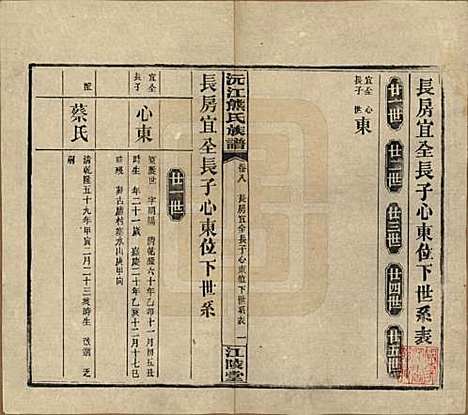 長房宜全長子心東位下世系表
廿一世
廿二世
廿三世
廿四世
廿五世
宜全長子
心東
沅江熊氏族譜
卷八
長房宜全長子心東位下世系表
一
江陵堂
長房宜全長子心東位下世系
廿二世
宜全長子
心東
乾隆六十年乙卯十一月初五
時生
年二十一歲
嘉慶二十年乙亥十二月十七
配
蔡氏
清乾隆五十九年甲寅二月二十三亥時生